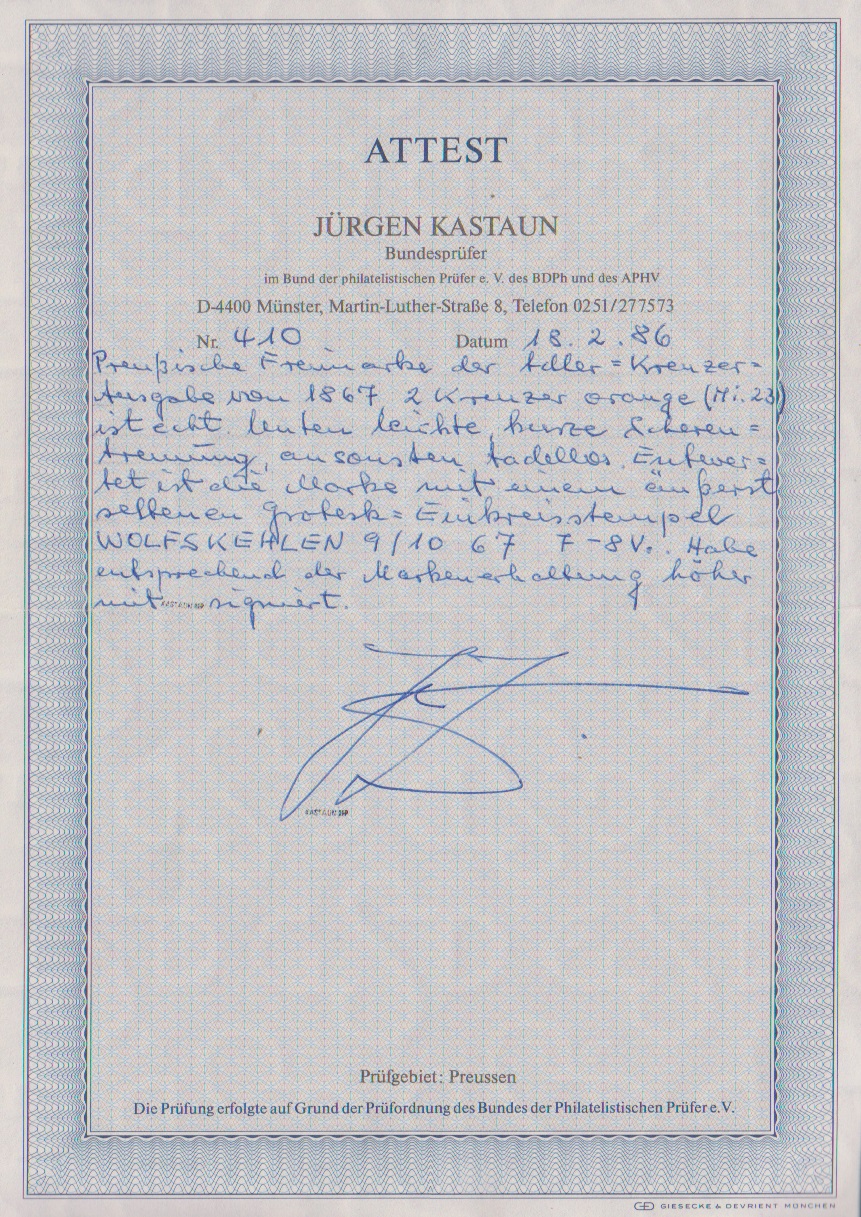 ATTEST
JÜRGEN KASTAUN
Bundesprüfer
im Bund der philatelistischen Prüfer e. V. des BDPh und des APHV
D-4400 Münster, Martin-Luther-Straße 8, Telefon 0251/277573
Nr. 410 Datum 18.2.86
Preußische Freimarke der Adler=Kreuzer=
Ausgabe von 1867, 2 Kreuzer orange (Mi. 23)
ist echt. Unten leichte, kurze Scheren=
trennung, ansonsten tadellos. Entwer=
tet ist die Marke mit einem äußerst
seltenen Grotesk=Einkreisstempel
WOLFSKEHLEN 9/10 67 7-8V.. Habe
entsprechend der Markenerhaltung höher
mit KASTAUN BPP signiert.
KASTAUN BPP
Prüfgebiet: Preussen
Die Prüfung erfolgte auf Grund der Prüfordnung des Bundes der Philatelistischen Prüfer e.V.
GD GIESECKE & DEVRIENT MÜNCHEN